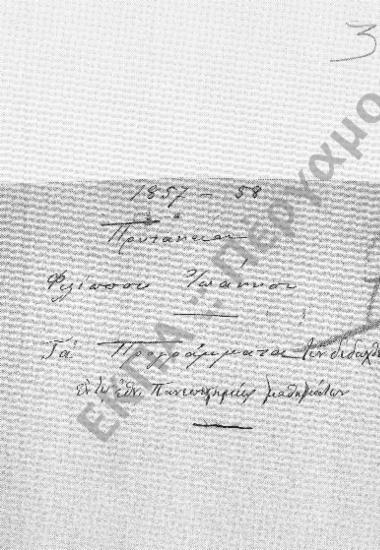 3
1857 - 58
Πρυτανεία
Φιλίππου Ἰωάννου
Τὰ Προγράμματα τῶν διδαχθέ
ἐν τῷ ἐθν. Πανεπιστημίῳ μαθημάτων
ΕΚΠΑ :: Πέργαμο